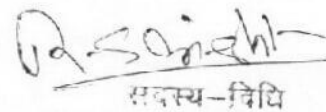 R.S. Singh
सदस्य-विधि